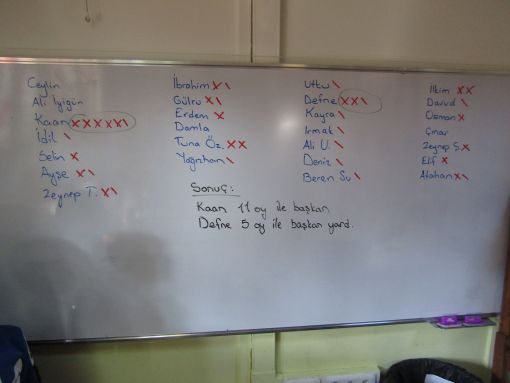 Ceylin
Ali İyigün
Kaan XXXXX\
İdil \
Selin X
Ayşe X\
Zeynep T. X\
İbrahim X\
Gülru X\
Erdem X
Damla
Tuna Öz. XX
Yağızhan \
Utku \
Defne XX\
Kayra \
Irmak \
Ali U. \
Deniz \
Beren Su \
İlkim XX
Davud \
Osman X
Çınar
Zeynep S. X
Elif X
Atahan X\
Sonuç:
Kaan 11 oy ile başkan
Defne 5 oy ile başkan yard.